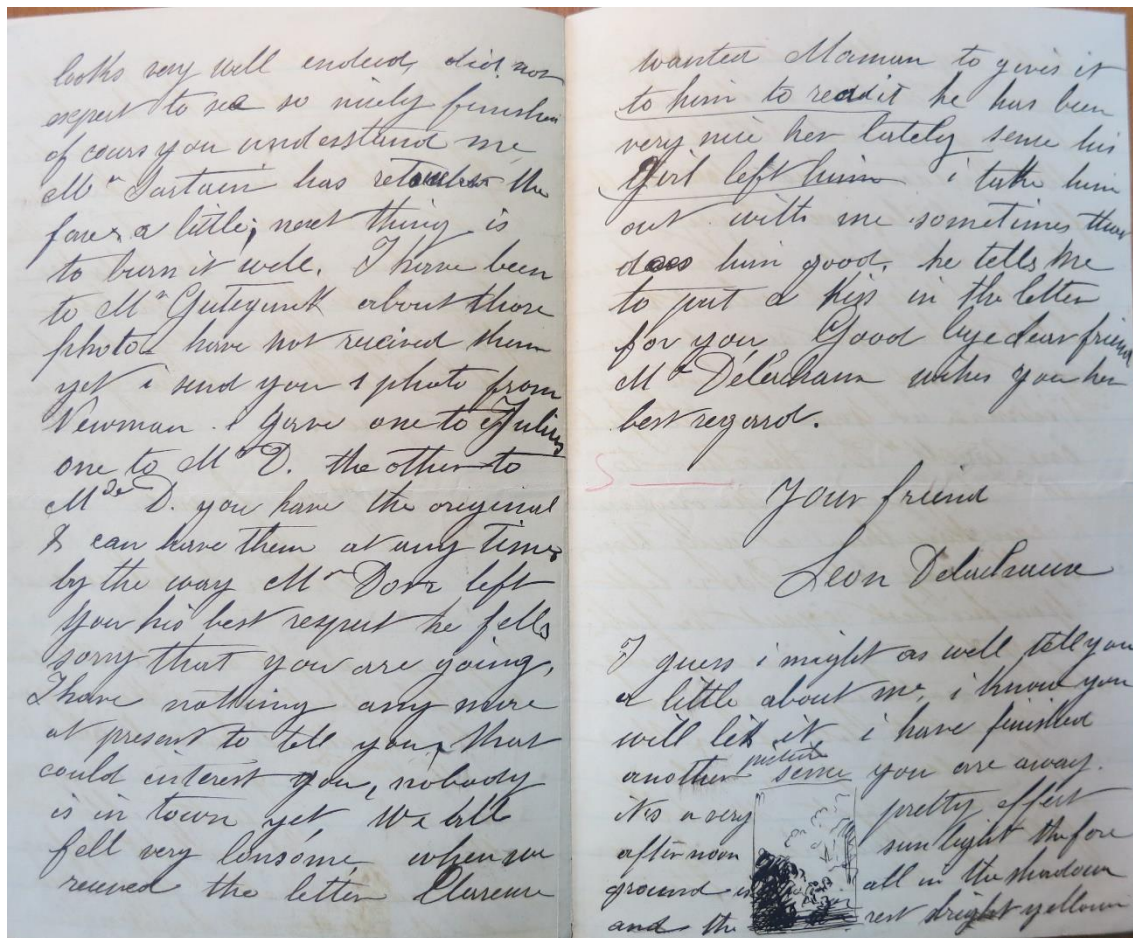 looks very well endeed, did not
expect to see so nicely finished
of cours you understand me
Mr Sartain has retouches the
face a little, next thing is
to burn it well. I have been
to Mr Gutegunst about those
photos have not recived them
yet i send you 1 photo from
Newman. i gave one to Julius
one to Mr D. the other to
Mde D. you have the original
I can have them at any time
by the way Mr Dorr left
you his best respect he fells
sorry that you are going,
I have nothing any more
at present to tell you, that
could interest you, nobody
is in town yet, We all
fell very lonsome, when we
recived the letter Clarence
wanted Maman to gives it
to him to read it he has been
very nice her lately sense his
girl left him i take him
out with me sometimes that
does him good. he tells me
to put a kiss in the letter
for you, Good bye dear friend
Me Delachaux wishes you her
best regard.
Your friend
Leon Delachaux
I guess i might as well tell you
a little about me, i know you
will lik it i have finished
another picture sense you are away.
it's a very pretty effect
afternoon sun light the fore
ground is all in the shadow
and the rest bright yellow